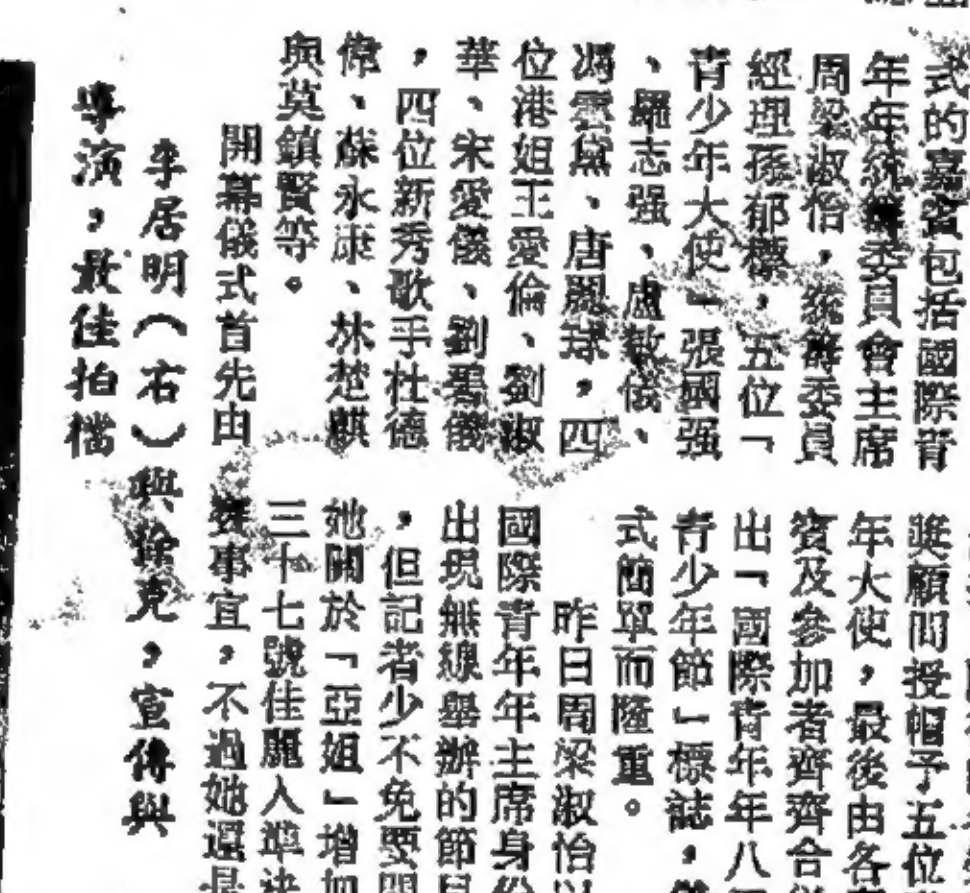 式的嘉賓包括國際青
年年統籌委員會主席
周梁淑怡，統籌委員
經理孫郁標，五位「
青少年大使」張國强
、羅志强、盧敏儀、
馮雲黛、唐麗球，四
位港姐王愛倫、劉淑
華、宋愛儀、劉碧儀
，四位新秀歌手杜德
偉、蘇永康、林楚麒
與莫鎮賢等。
開幕儀式首先由
獎顧問授帽予五位
年大使，最後由各
賓及參加者齊齊合
出「國際青年年八
青少年節」標誌，
式簡單而隆重。
昨日周梁淑怡以
國際青年年主席身份
出現無線舉辦的節目
，但記者少不免要問
她關於「亞姐」增加
三十七號佳麗入準決
賽事宜，不過她還是
李居明（右）與徐克，宣傳與
導演，最佳拍檔